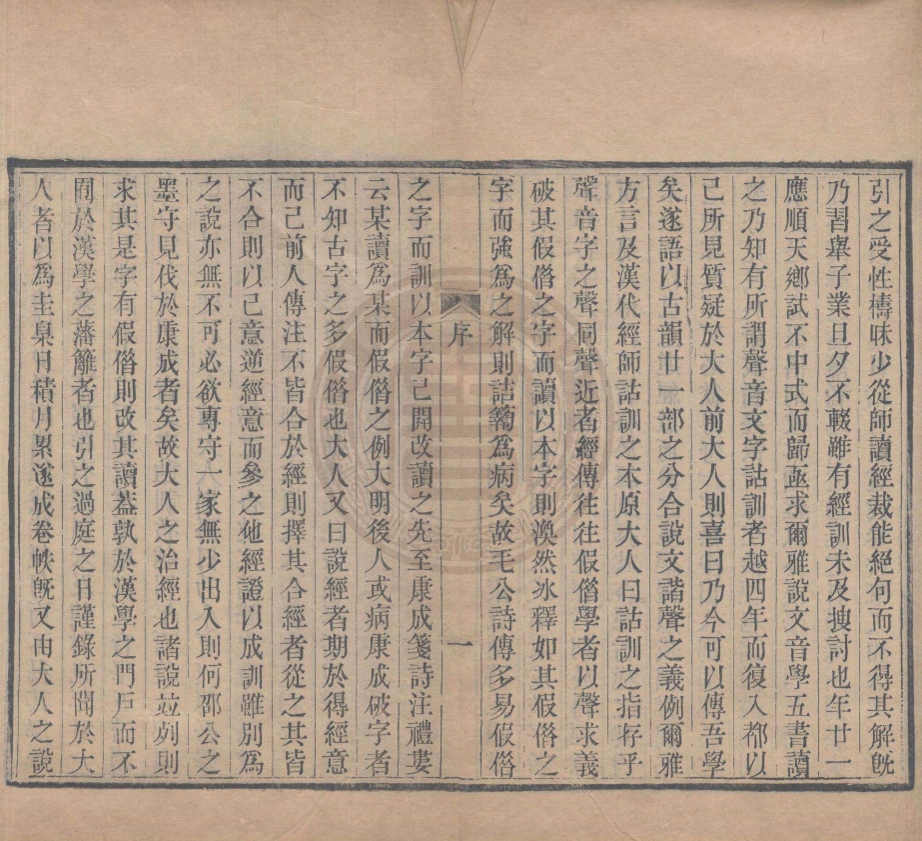 引之受性檮昧少從師讀經裁能絕句而不得其解旣
乃習舉子業旦夕不輟雖有經訓未及搜討也年廿一
應順天鄉試不中式而歸亟求爾雅說文音學五書讀
之乃知有所謂聲音文字詁訓者越四年而復入都以
己所見質疑於大人前大人則喜曰乃今可以傳吾學
矣遂語以古韻廿一部之分合說文諧聲之義例爾雅
方言及漢代經師詁訓之本原大人曰詁訓之指存乎
聲音字之聲同聲近者經傳往往假借學者以聲求義
破其假借之字而讀以本字則渙然冰釋如其假借之
字而強爲之解則詰𥷚爲病矣故毛公詩傳多易假借
序
一
之字而訓以本字已開改讀之先至康成箋詩注禮婁
云某讀爲某而假借之例大明後人或病康成破字者
不知古字之多假借也大人又曰說經者期於得經意
而已前人傳注不皆合於經則擇其合經者從之其皆
不合則以己意逆經意而參之他經證以成訓雖別爲
之說亦無不可必欲專守一家無少出入則何邵公之
墨守見伐於康成者矣故大人之治經也諸說竝列則
求其是字有假借則改其讀蓋孰於漢學之門戶而不
囿於漢學之藩籬者也引之過庭之日謹錄所聞於大
人者以爲圭臬日積月累遂成卷帙旣又由大人之說